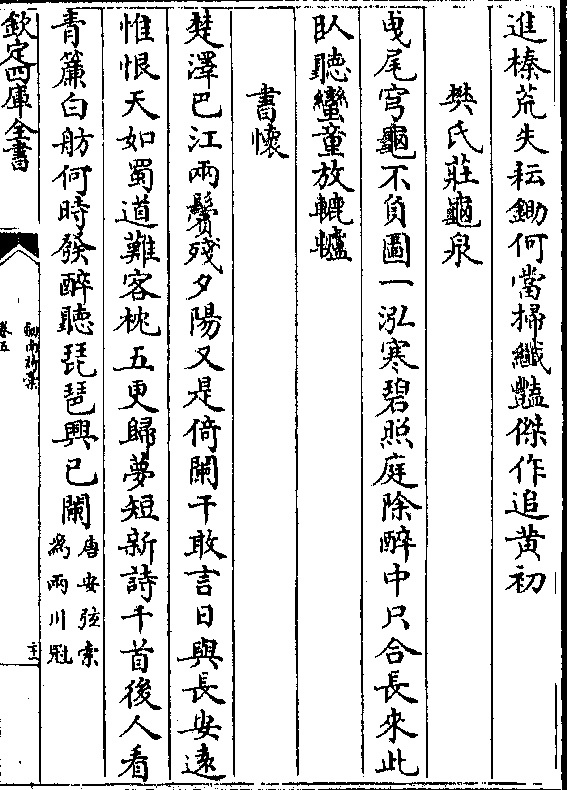 進榛荒失耘鋤何當掃纖豔傑作追黄初
樊氏莊龜泉
曵尾穹龜不負圖一泓寒碧照庭除醉中只合長來此
臥聽蠻童放轆轤
書懷
楚澤巴江兩鬢殘夕陽又是倚闌干敢言日與長安逺
惟恨天如蜀道難客枕五更歸夢短新詩千首後人看
青簾白舫何時發醉聽琵琶興已闌唐安弦索為兩川冠
欽定四庫全書
劍南詩稾
卷五